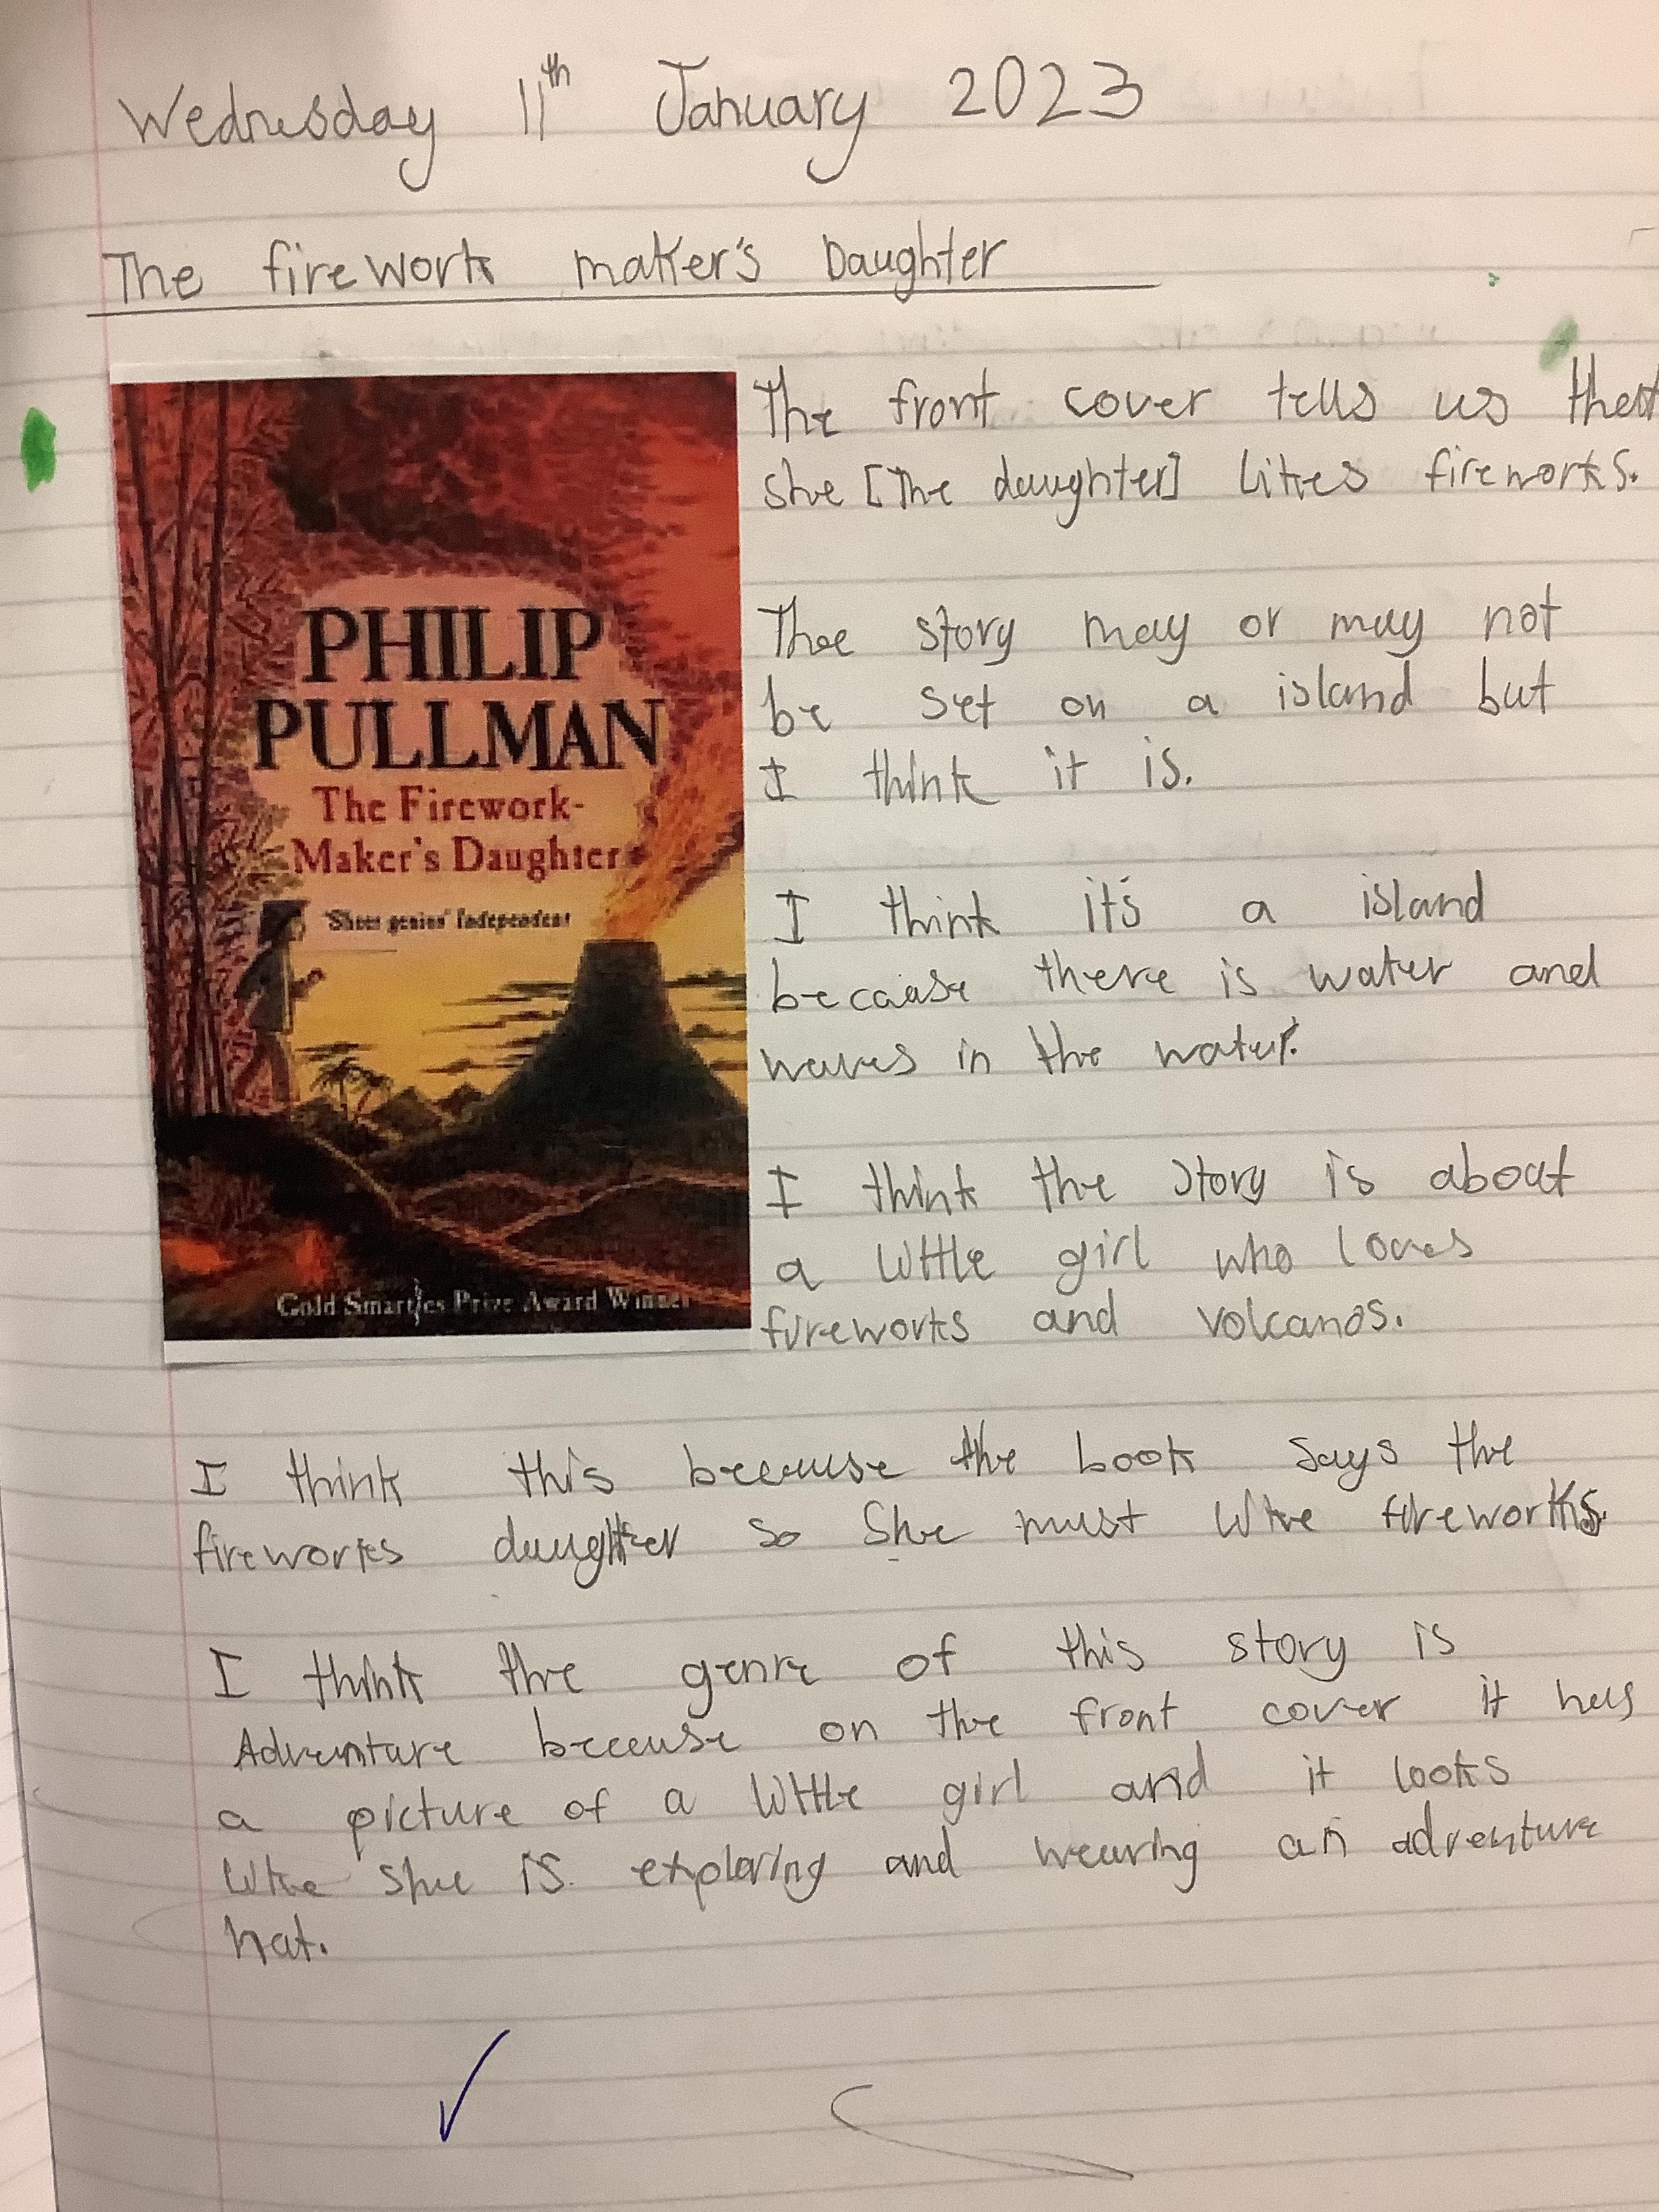 Wednesday 11th January 2023
The firework maker's Daughter
PHILIP
PULLMAN
The Firework-
Maker's Daughter
'Sheer genius' Independent
Gold Smarties Prize Award Winner
The front cover tells us that
she [The daughter] likes fireworks.
The story may or may not
be set on a island but
I think it is.
I think it's a island
because there is water and
waves in the water.
I think the story is about
a little girl who loves
fireworks and volcanos.
I think this because the book says the
fireworks daughter so She must like fireworks.
I think the genre of this story is
Adventure because on the front cover it has
a picture of a little girl and it looks
like she is exploring and wearing an adventure
hat.